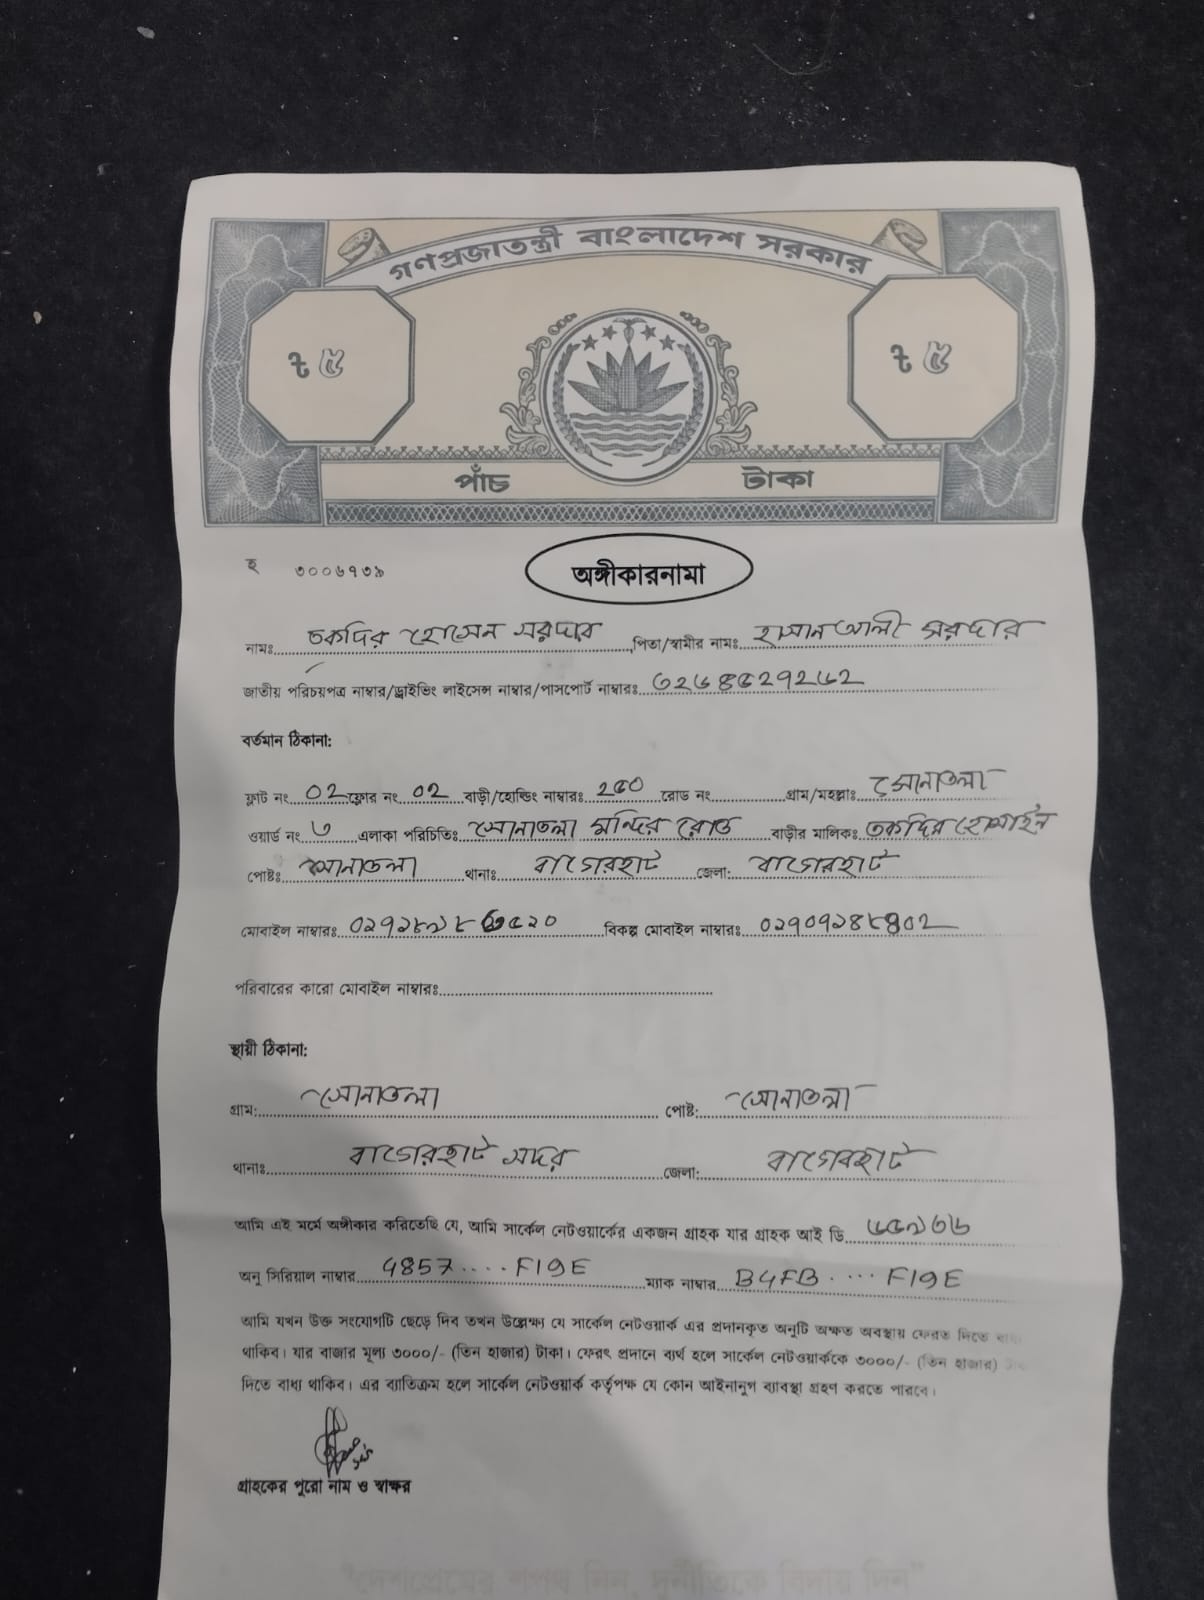 গণপ্রজাতন্ত্রী বাংলাদেশ সরকার
৳ ৫ ৳ ৫
পাঁচ টাকা
হ ৩০০৬৭৩৯
অঙ্গীকারনামা
নামঃ তকদির হোসেন সরদার পিতা/স্বামীর নামঃ হাসান আলী সরদার
জাতীয় পরিচয়পত্র নাম্বার/ড্রাইভিং লাইসেন্স নাম্বার/পাসপোর্ট নাম্বারঃ
বর্তমান ঠিকানা:
ফ্লাট নং 02 ফ্লোর নং 02 বাড়ী/হোল্ডিং নাম্বারঃ ২৫০ রোড নং গ্রাম/মহল্লাঃ সোনাতলা
ওয়ার্ড নং ৩ এলাকা পরিচিতিঃ সোনাতলা মন্দির রোড বাড়ীর মালিকঃ তকদির হোসাইন
পোষ্টঃ সোনাতলা থানাঃ বাগেরহাট জেলা: বাগেরহাট
মোবাইল নাম্বারঃ বিকল্প মোবাইল নাম্বারঃ
পরিবারের কারো মোবাইল নাম্বারঃ
স্থায়ী ঠিকানা:
গ্রাম: সোনাতলা পোষ্ট: সোনাতলা
থানাঃ বাগেরহাট সদর জেলা: বাগেরহাট
আমি এই মর্মে অঙ্গীকার করিতেছি যে, আমি সার্কেল নেটওয়ার্কের একজন গ্রাহক যার গ্রাহক আই ডি ৬৫৯৩৬
অনু সিরিয়াল নাম্বার 4857.... F19E ম্যাক নাম্বার B4FB.... F19E
আমি যখন উক্ত সংযোগটি ছেড়ে দিব তখন উল্লেক্ষ্য যে সার্কেল নেটওয়ার্ক এর প্রদানকৃত অনুটি অক্ষত অবস্থায় ফেরত দিতে
থাকিব। যার বাজার মূল্য ৩০০০/- (তিন হাজার) টাকা। ফেরৎ প্রদানে ব্যর্থ হলে সার্কেল নেটওয়ার্ককে ৩০০০/- (তিন হাজার)
দিতে বাধ্য থাকিব। এর ব্যতিক্রম হলে সার্কেল নেটওয়ার্ক কর্তৃপক্ষ যে কোন আইনানুগ ব্যাবস্থা গ্রহণ করতে পারবে।
গ্রাহকের পুরো নাম ও স্বাক্ষর
"দেশপ্রেমের শপথ নিন, দুর্নীতিকে বিদায় দিন"